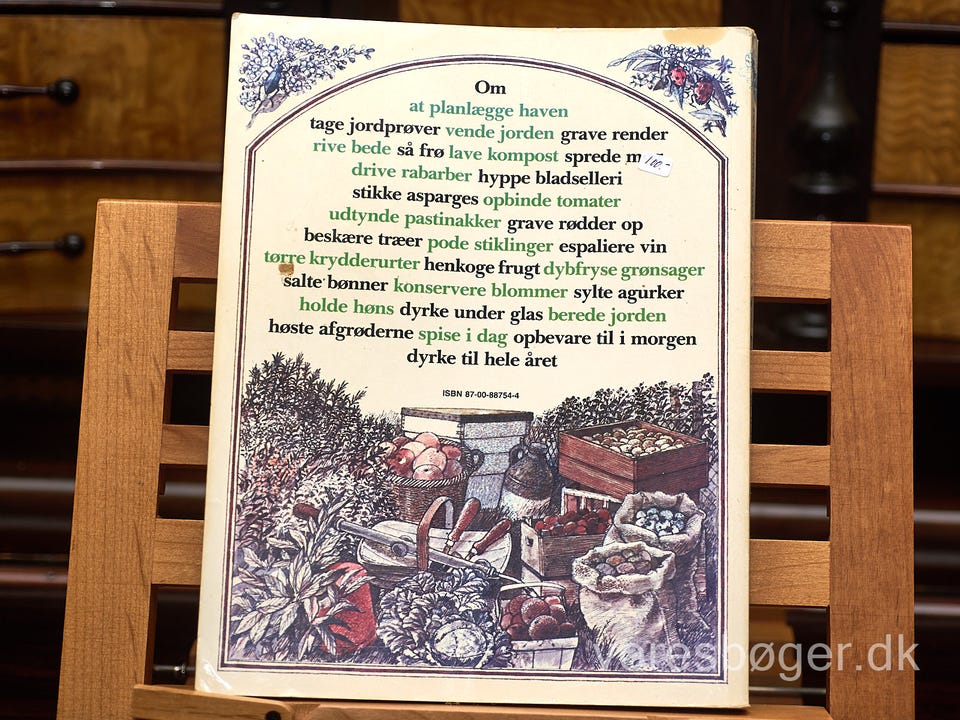 Om
at planlægge haven
tage jordprøver vende jorden grave render
rive bede så frø lave kompost sprede
100.-
drive rabarber hyppe bladselleri
stikke asparges opbinde tomater
udtynde pastinakker grave rødder op
beskære træer pode stiklinger espaliere vin
tørre krydderurter henkoge frugt dybfryse grønsager
salte bønner konservere blommer sylte agurker
holde høns dyrke under glas berede jorden
høste afgrøderne spise i dag opbevare til i morgen
dyrke til hele året
ISBN 87-00-88754-4
voresbøger.dk